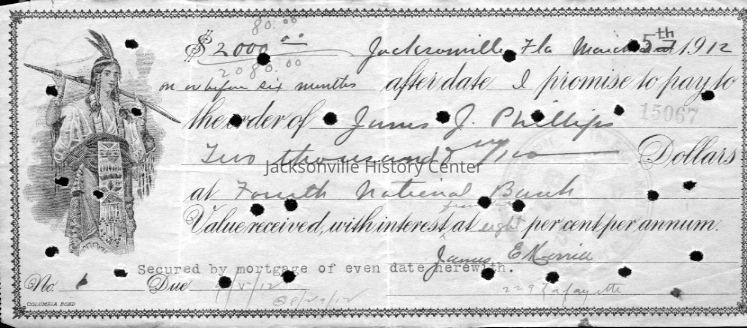 80.00
$2000 00 Jacksonville, Fla March 5th 1912
2080.00
on or before six months after date I promise to pay to
the order of James J. Phillips
15067
Two thousand & no/100 Dollars
Jacksonville History Center
at Fourth National Bank
Value received, with interest at eight per cent per annum.
James E Merrill
Secured by mortgage of even date herewith.
No. 1 Due 9/5/12
229 Lafayette
COLUMBIA BOND